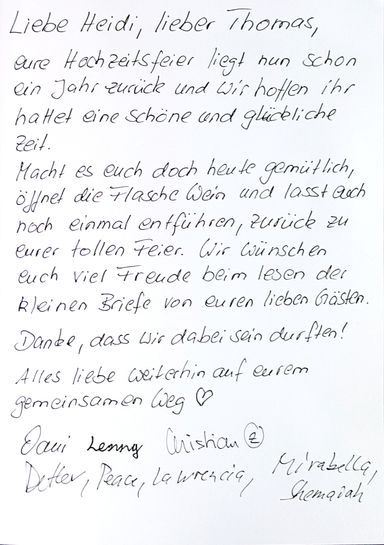 Liebe Heidi, lieber Thomas,
eure Hochzeitsfeier liegt nun schon
ein Jahr zurück und wir hoffen ihr
hattet eine schöne und glückliche
Zeit.
Macht es euch doch heute gemütlich,
öffnet die Flasche Wein und lasst euch
noch einmal entführen, zurück zu
eurer tollen Feier. Wir wünschen
euch viel Freude beim lesen der
kleinen Briefe von euren lieben Gästen.
Danke, dass wir dabei sein durften!
Alles liebe weiterhin auf eurem
gemeinsamen Weg ♡
Dani Lenny Christian
Detlev, Peace, Lawrencia, Mirabella,
Shemaiah